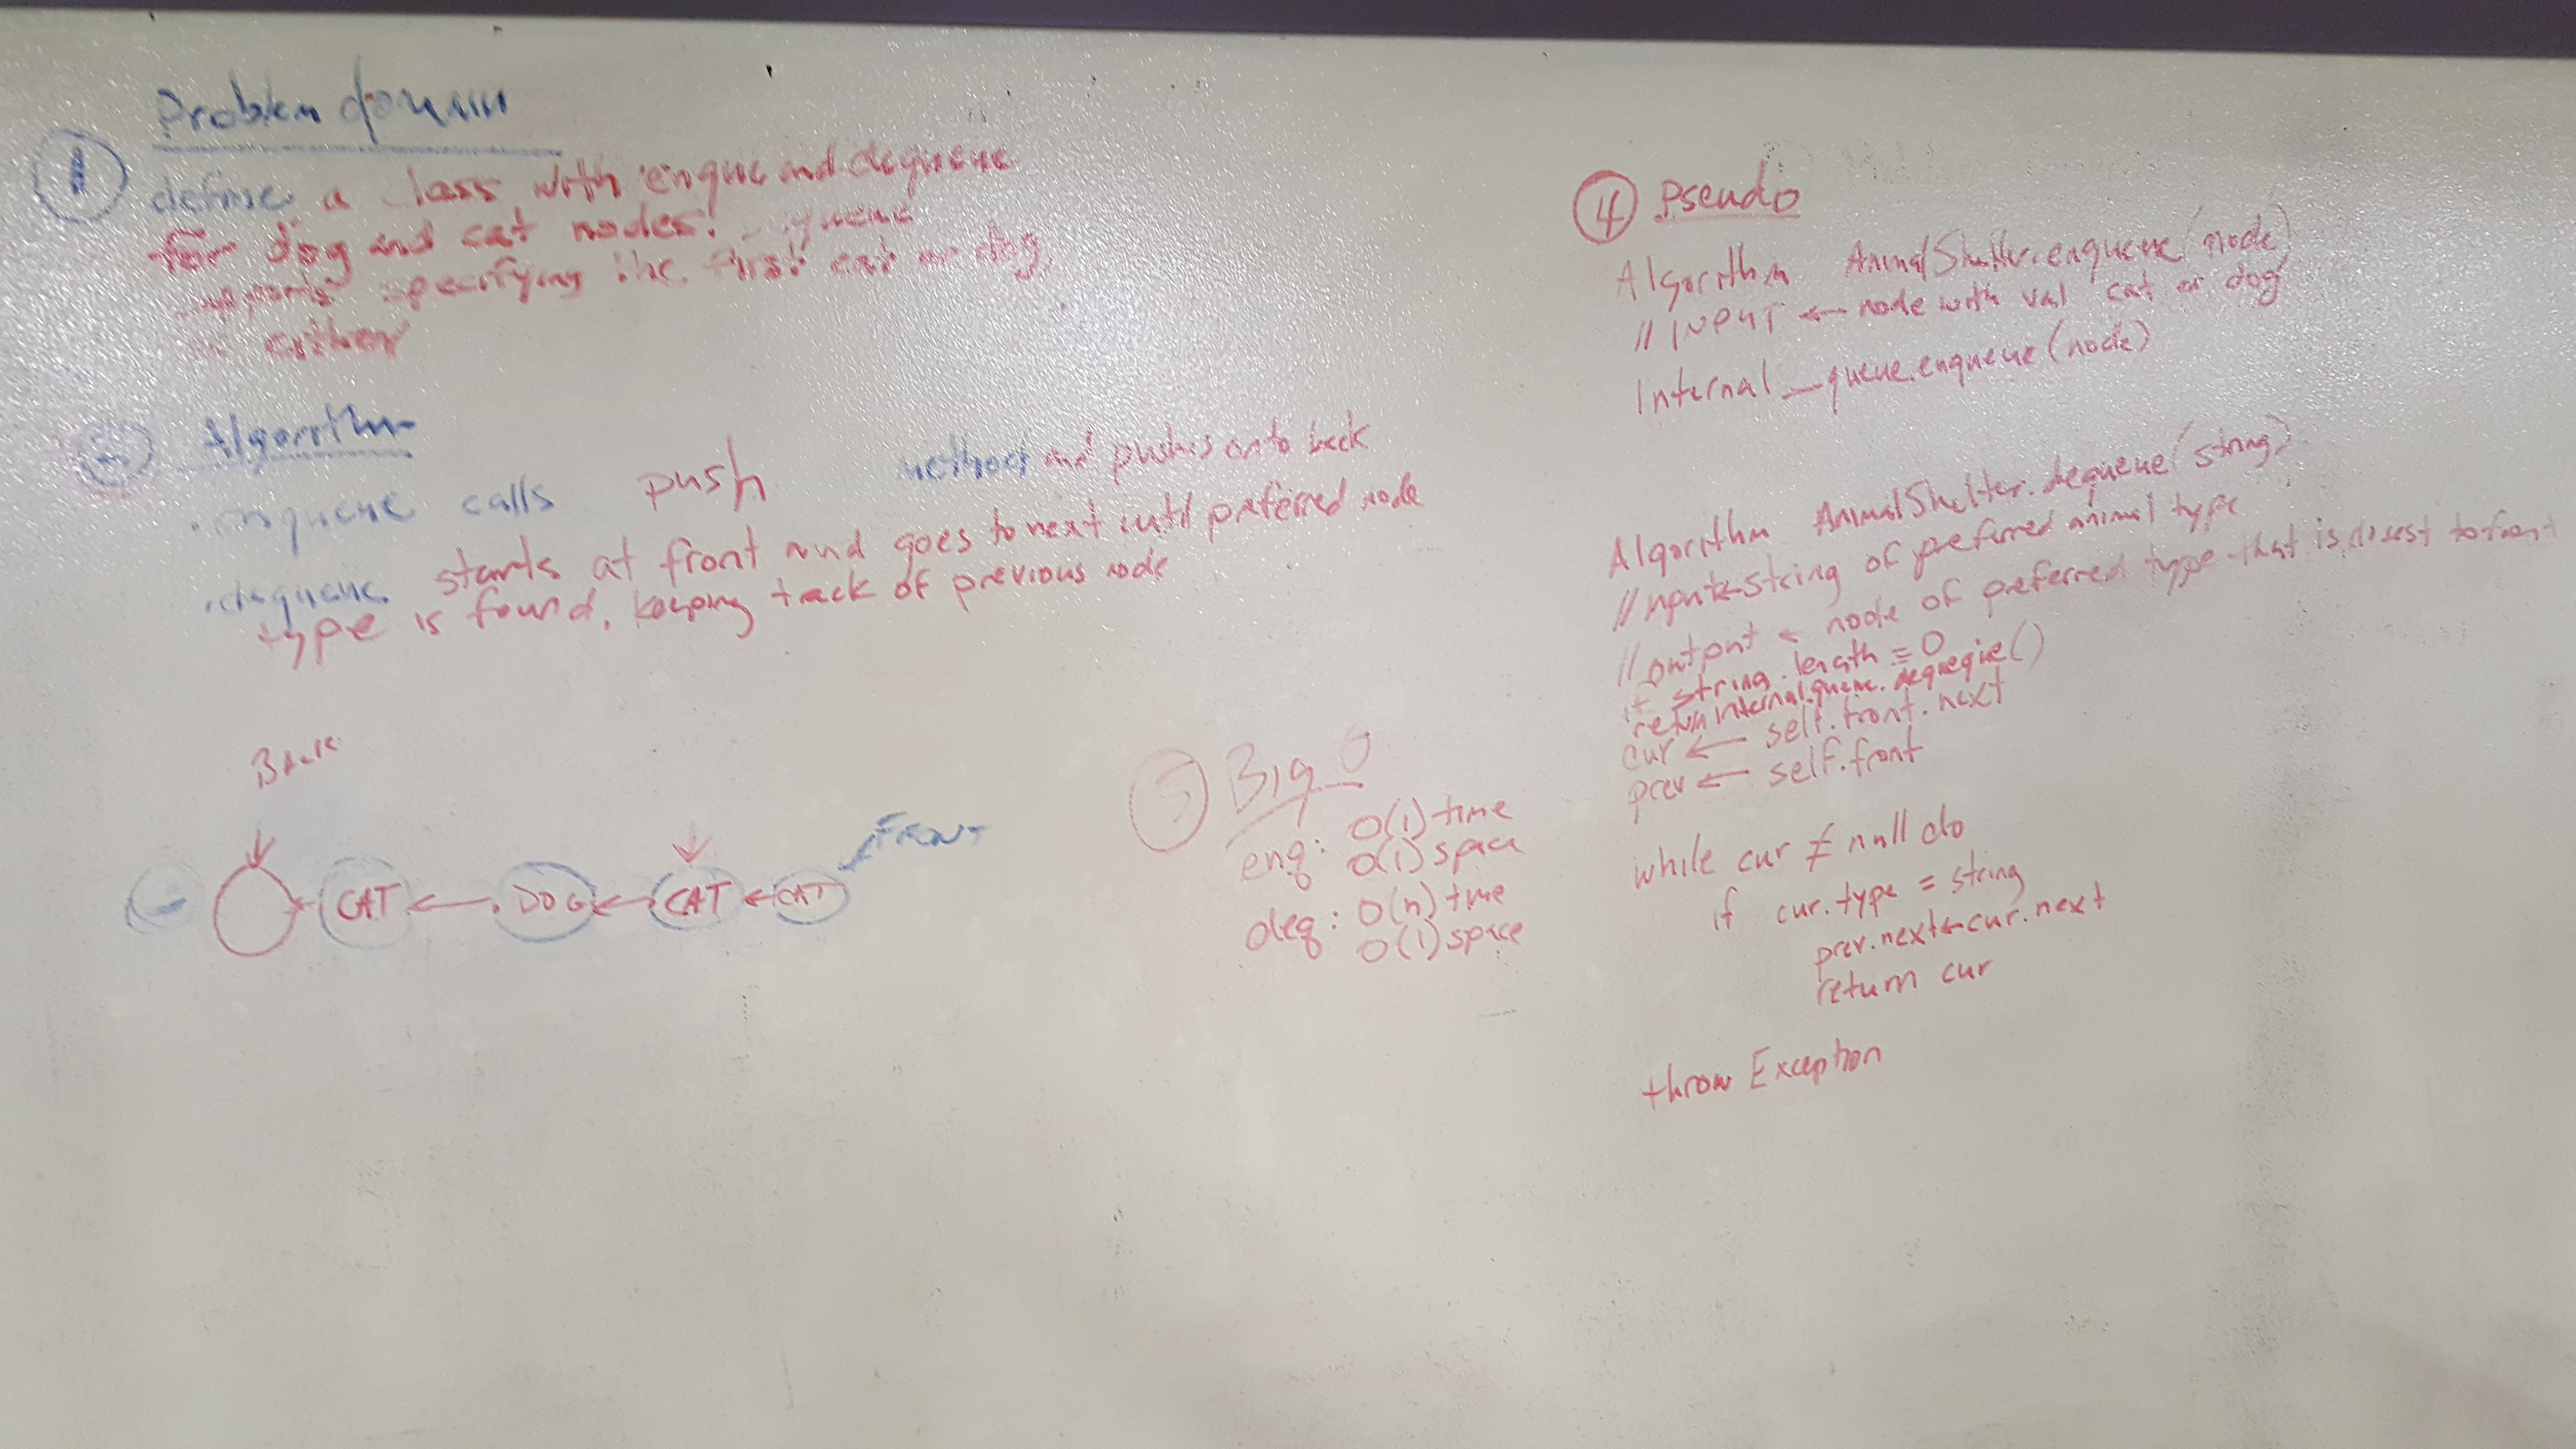 Problem domain
1
define a class with enque and dequeue
for dog and cat nodes.
specifying the first cat or dog
either
2 Algorithm
enqueue calls push method and pushes onto back
dequeue starts at front and goes to next until preferred node
type is found, keeping track of previous node
Back
FRONT
CAT DOG CAT CAT
3 Big O
enq: O(1) time
O(1) space
deq: O(n) time
O(1) space
4 Pseudo
Algorithm AnimalShelter.enqueue(node)
// INPUT ← node with val cat or dog
Internal_queue.enqueue(node)
Algorithm AnimalShelter.dequeue(string)
string of preferred animal type
// output ← node of preferred type that is closest to front
if string.length = 0
return internal.queue.
cur ← self.front.next
prev ← self.front
while cur ≠ null do
if cur.type = string
prev.next ← cur.next
return cur
throw Exception